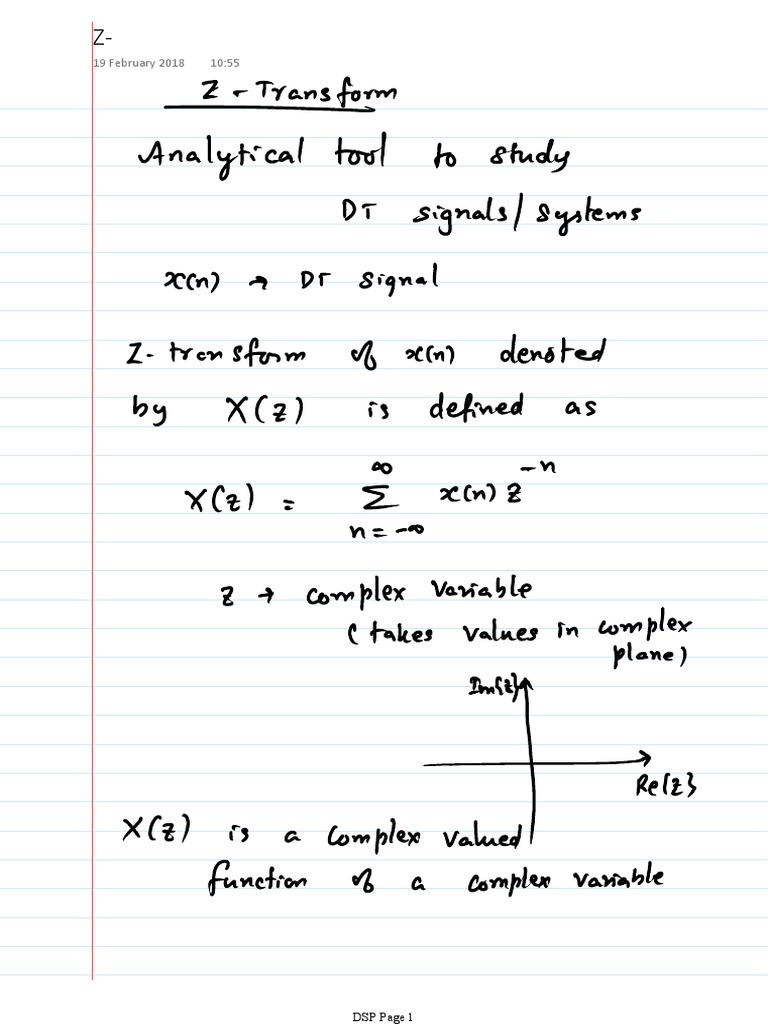 Z-
19 February 2018 10:55
Z - Transform
Analytical tool to study
DT signals/systems
x(n) → DT signal
Z-transform of x(n) denoted
by X(z) is defined as
∞
X(z) = Σ x(n) z^-n
n = -∞
z → complex variable
(takes values in complex
plane)
Im{z}
Re{z}
X(z) is a complex valued
function of a complex variable
DSP Page 1